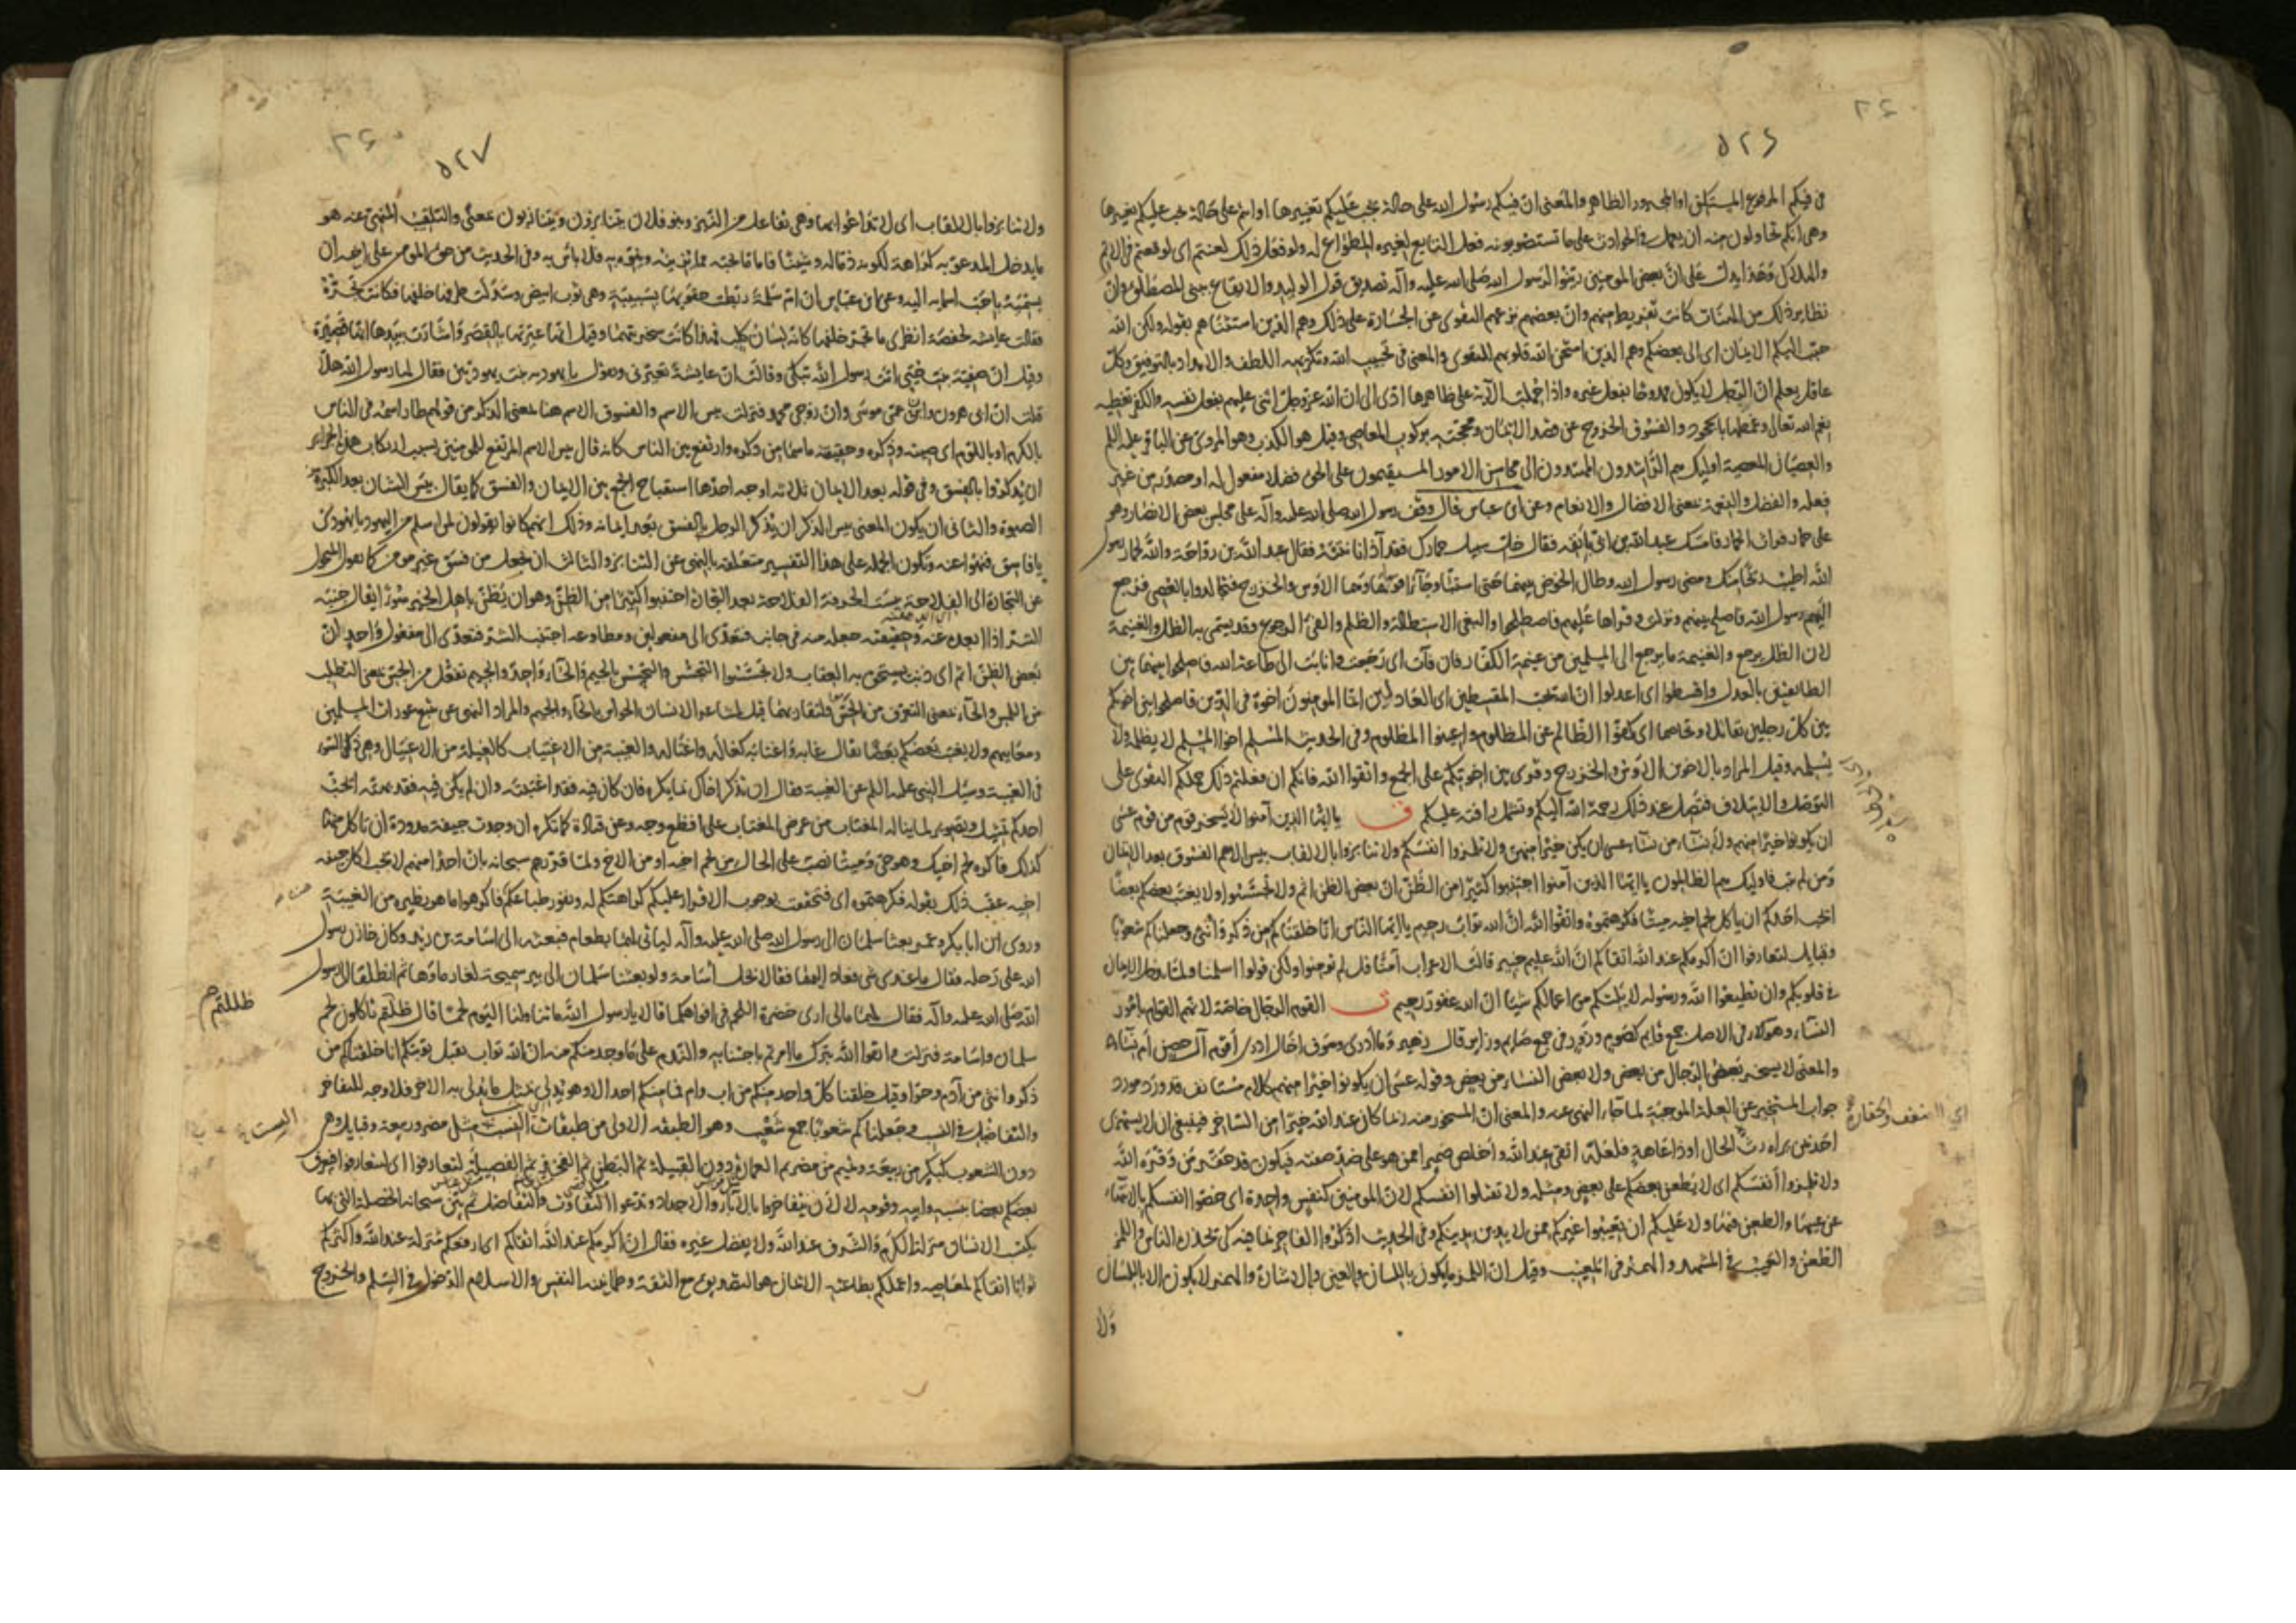 ٥٢٦
في فيكم المرفوع المستكن او المجرور الظاهر والمعنى ان فيكم رسول الله على حالة يجب عليكم تغييرها او انتم على حالة يجب عليكم تغييرها
وهي انكم تحاولون منه ان يعمل في الحوادث على ما تستصوبونه فعل التابع لغيره المطواع له ولو فعل ذلك لعنتم اى لوقعتم في الاثم
والهلاك وهذا يدل على ان بعض المومنين زينوا لرسول الله صلى الله عليه وآله تصديق قول الوليد والايقاع ببنى المصطلق وان
نظاير ذلك من الهنات كانت تفرط منهم وان بعضهم يزعهم التقوى عن الجسارة على ذلك وهم الذين استثناهم بقوله ولكن الله
حبب اليكم الايمان اى الى بعضكم وهم الذين امتحن الله قلوبهم للتقوى والمعنى في تحبيب الله وتكريهه اللطف والامداد بالتوفيق وكل
عاقل يعلم ان الرجل لا يكون ممدوحا بفعل غيره واذا حملت الآية على ظاهرها ادى الى ان الله عز وجل اثنى عليهم بفعل نفسه والكفر تغطية
نعم الله تعالى وغمطها بالجحود والفسوق الخروج عن قصد الايمان ومحجته بركوب المعاصى وقيل هو الكذب وهو المروى عن الباقر عليه السلم
والعصيان المعصية اوليك هم الراشدون المهتدون الى محاسن الامور المستقيمون على الحق فضلا مفعول له او مصدر من غير
فعله والفضل والنعمة بمعنى الافضال والانعام وعن ابن عباس قال وقف رسول الله صلى الله عليه وآله على مجلس بعض الانصار وهو
على حمار فراث الحمار فامسك عبد الله بن ابى بانفه فقال خل سبيل حمارك فقد آذانا نتنه فقال عبد الله بن رواحة والله لحمار رسول
الله اطيب ريحا منك ومضى رسول الله وطال الخوض بينهما حتى استبا وجاء قوماهما الاوس والخزرج فتجالدوا بالعصى فرجع
اليهم رسول الله فاصلح بينهم ونزلت وقراها عليهم فاصطلحوا والبغى الاستطالة والظلم والفىء الرجوع وقد يسمى به الظل والغنيمة
لان الظل يرجع والغنيمة ما يرجع الى المسلمين من غنيمة الكفار فان فآت اى رجعت وانابت الى طاعة الله فاصلحوا بينهما بين
الطائفتين بالعدل واقسطوا اى اعدلوا ان الله يحب المقسطين اى العادلين انما المومنون اخوة في الدين فاصلحوا بين اخويكم
بين كل رجلين تقاتلا وتخاصما اى كفوا الظالم عن المظلوم واعينوا المظلوم وفي الحديث المسلم اخو المسلم لا يظلمه ولا
يسلمه وقيل المراد بالاخوين الاوس والخزرج وقرى بين اخوتكم على الجمع واتقوا الله فانكم ان فعلتم ذلك حملكم التقوى على
التواصل والايتلاف فتصل عند ذلك رحمة الله اليكم وتشتمل رافته عليكم ق يا ايها الذين آمنوا لا يسخر قوم من قوم عسى
ان يكونوا خيرا منهم ولا نساء من نساء عسى ان يكن خيرا منهن ولا تلمزوا انفسكم ولا تنابزوا بالالقاب بيس الاسم الفسوق بعد الايمان
ومن لم يتب فاوليك هم الظالمون يا ايها الذين آمنوا اجتنبوا كثيرا من الظن ان بعض الظن اثم ولا تجسسوا ولا يغتب بعضكم بعضا
ايحب احدكم ان ياكل لحم اخيه ميتا فكرهتموه واتقوا الله ان الله تواب رحيم يا ايها الناس انا خلقناكم من ذكر وانثى وجعلناكم شعوبا
وقبايل لتعارفوا ان اكرمكم عند الله اتقاكم ان الله عليم خبير قالت الاعراب آمنا قل لم تومنوا ولكن قولوا اسلمنا ولما يدخل الايمان
في قلوبكم وان تطيعوا الله ورسوله لا يلتكم من اعمالكم شيئا ان الله غفور رحيم ت القوم الرجال خاصة لانهم القوام بامور
النساء وهو في الاصل جمع قايم كصوم وزور في جمع صايم وزاير قال زهير وما ادرى وسوف اخال ادرى أقوم آل حصن ام نساء
والمعنى لا يسخر بعض الرجال من بعض ولا بعض النساء من بعض وقوله عسى ان يكونوا خيرا منهم كلام مستانف قد ورد مورد
جواب المستخبر عن العلة الموجبة لما جاء النهى عنه والمعنى ان المسخور منه ربما كان عند الله خيرا من الساخر فينبغى ان لا يستهزى
احد بمن يراه رث الحال او ذا عاهة فلعله اتقى عند الله واخلص ضميرا ممن هو على ضد صفته فيكون قد حقر من وقره الله
ولا تلمزوا انفسكم اى لا يطعن بعضكم على بعض ومثله ولا تقتلوا انفسكم لان المومنين كنفس واحدة اى خصوا انفسكم بالانتهاء
عن عيبها والطعن فيها ولا عليكم ان تعيبوا غيركم ممن لا يدين بدينكم وفي الحديث اذكروا الفاجر بما فيه كى تحذره الناس واللمز
الطعن والعيب في المشهد والهمز في المغيب وقيل ان اللمز ما يكون باللسان والعين والاشارة والهمز لا يكون الا باللسان
ولا
اى الضعف والحقارة
٥٢٧
ولا تنابزوا بالالقاب اى لا تداعوا بها وهى تفاعل من النبز وبنو فلان يتنابزون ويتنازبون بمعنى والتلقيب المنهى عنه هو
ما يدخل المدعو به كراهة لكونه ذما له وشينا فاما ما يحبه مما يزينه وينوه به فلا باس به وفي الحديث من حق المومن على اخيه ان
يسميه باحب اسمائه اليه وعن ابن عباس ان ام سلمة ربطت حقويها بسبنية وهى ثوب ابيض وسدلت طرفها خلفها فكانت تجره
فقالت عايشه لحفصة انظرى ما تجر خلفها كانه لسان كلب فهذا كانت سخريتهما وقيل انها عيرتها بالقصر واشارت بيدها انها قصيرة
وقيل ان صفية بنت حيى اتت رسول الله تبكى وقالت ان عايشة تعيرنى وتقول يا يهودية بنت يهوديين فقال لها رسول الله هلا
قلت ان ابى هرون وان عمى موسى وان زوجى محمد فنزلت بيس الاسم الفسوق الاسم هنا بمعنى الذكر من قولهم طار اسمه في الناس
بالكرم او باللؤم اى صيته وذكره وحقيقته ما سما من ذكره وارتفع بين الناس كانه قال بيس الاسم المرتفع للمومنين بسبب ارتكاب هذه الجراير
ان يذكروا بالفسق وفي قوله بعد الايمان ثلاثه اوجه احدها استقباح الجمع بين الايمان والفسق كما يقال بيس الشان بعد الكبرة
الصبوة والثانى ان يكون المعنى بيس الذكر ان يذكر الرجل بالفسق بعد ايمانه وذلك انهم كانوا يقولون لمن اسلم من اليهود يا يهودى
يا فاسق فنهوا عنه وتكون الجملة على هذا التفسير متعلقة بالنهى عن التنابز والثالث ان يجعل من فسق غير مومن كما تقول للمتحول
عن التجارة الى الفلاحة بيست الحرفة الفلاحة بعد التجارة اجتنبوا كثيرا من الظن وهو ان يظن باهل الخير سوءا يقال جنبه
الشر اذا ابعده عنه وحقيقته جعله منه في جانب فتعدى الى مفعولين ومطاوعه اجتنب الشر فتعدى الى مفعول واحد ان
بعض الظن اثم اى ذنب يستحق به العقاب ولا تجسسوا التجسس والتحسس بالجيم والحاء واحد والجيم تفعل من الجس بمعنى التطلب
من اللمس والحاء بمعنى التعرف من الحس ولتقاربهما قيل لمشاعر الانسان الحواس بالحاء والجيم والمراد النهى عن تتبع عورات المسلمين
ومعايبهم ولا يغتب بعضكم بعضا يقال غابه واغتابه كغاله واغتاله والغيبة من الاغتياب كالغيلة من الاغتيال وهى ذكر السوء
في الغيبة وسيل النبى عليه السلم عن الغيبة فقال ان تذكر اخاك بما يكره فان كان فيه فقد اغتبته وان لم يكن فيه فقد بهته ايحب
احدكم تمثيل وتصوير لما يناله المغتاب من عرض المغتاب على افظع وجه وعن قتادة كما تكره ان وجدت جيفة مدودة ان تاكل منها
كذلك فاكره لحم اخيك وهو حى وميتا نصب على الحال من لحم اخيه او من الاخ ولما قررهم سبحانه بان احدا منهم لا يحب اكل جيفة
اخيه عقب ذلك بقوله فكرهتموه اى فتحققت بوجوب الاقرار عليكم كراهتكم له ونفور طباعكم فاكرهوا ما هو نظيره من الغيبة
وروى ان ابا بكر وعمر بعثا سلمان الى رسول الله صلى الله عليه وآله لياتى لهما بطعام فبعثه الى اسامة بن زيد وكان خازن رسول
الله على رحله فقال ما عندى شى فعاد اليهما فقالا بخل اسامة ولو بعثنا سلمان الى بير سميحة لغار ماؤها ثم انطلقا الى رسول
الله صلى الله عليه وآله فقال لهما ما لى ارى خضرة اللحم في افواهكما قالا يا رسول الله ما تناولنا اليوم لحما قال ظللتم تاكلون لحم
سلمان واسامة فنزلت واتقوا الله بترك ما امرتم باجتنابه والندم على ما وجد منكم منه ان الله تواب يقبل توبتكم انا خلقناكم من
ذكر وانثى من آدم وحوا وقيل خلقنا كل واحد منكم من اب وام فما منكم احد الا وهو يدلى بمثل ما يدلى به الاخر فلا وجه للتفاخر
والتفاضل في النسب وجعلناكم شعوبا جمع شعب وهو الطبقه الاولى من طبقات النسب مثل مضر وربيعة وقبايل وهى
دون الشعوب كبكر من ربيعة وتميم من مضر ثم العمارة دون القبيلة ثم البطن ثم الفخذ ثم الفصيلة لتعارفوا اى لتعارفوا فيعرف
بعضكم بعضا بنسبه وابيه وقومه لا لان يتفاخروا بالآباء والاجداد وتدعوا التفاوت والتفاضل ثم بين سبحانه الخصلة التى بها
يكتسب الانسان منزلة الكرم والشرف عند الله ولا يفضل غيره فقال ان اكرمكم عند الله اتقاكم اى ارفعكم منزلة عند الله واكثركم
ثوابا اتقاكم لمعاصيه واعملكم بطاعته الايمان هو التصديق مع الثقة وطمانينة النفس والاسلام الدخول في السلم والخروج
ظللتم